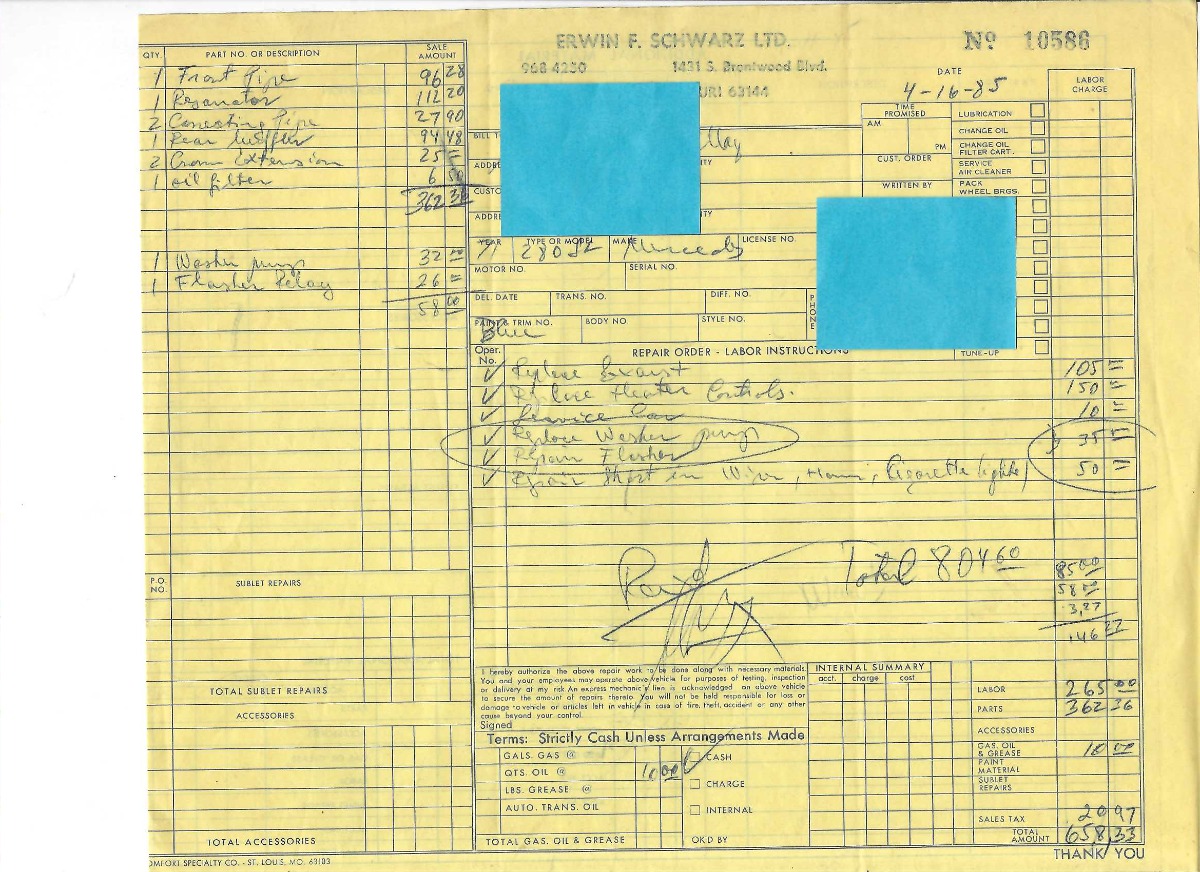 ERWIN F. SCHWARZ LTD.
Nº 10586
968-4250 1431 S. Brentwood Blvd.
URI 63144
DATE
4-16-85
QTY. PART NO. OR DESCRIPTION SALE AMOUNT
1 Front Pipe 96 28
1 Resonator 112 20
2 Conecting Pipe 27 90
1 Rear Muffler 94 48
2 Crom Extension 25 =
1 oil filter 6 50
362 36
1 Washer pump 32 00
1 Flasher Relay 26 =
58 00
P.O. NO. SUBLET REPAIRS
TOTAL SUBLET REPAIRS
ACCESSORIES
TOTAL ACCESSORIES
BILL T
ADDRE
CUSTO
ADDRE
TY
TY
YEAR TYPE OR MODEL MAKE LICENSE NO.
71 280 SL Mercedes
MOTOR NO. SERIAL NO.
DEL. DATE TRANS. NO. DIFF. NO.
PHONE
PAINT & TRIM NO. BODY NO. STYLE NO.
Blue
TIME PROMISED
AM
PM
CUST. ORDER
WRITTEN BY
LABOR CHARGE
LUBRICATION
CHANGE OIL
CHANGE OIL FILTER CART.
SERVICE AIR CLEANER
PACK WHEEL BRGS.
TUNE-UP
Oper. No. REPAIR ORDER - LABOR INSTRUCTIONS
✓ Replace Exaust 105 =
✓ Replace Heater Controls. 150 =
✓ Service Car 10 =
✓ Replace Washer pump 35 =
✓ Repair Flasher
✓ Repair Short in Wiper, Horn, Cigarette lighter 50 =
Paid
Total 804 60
85 00
58 00
3,27
146 27
I hereby authorize the above repair work to be done along with necessary materials.
You and your employees may operate above vehicle for purposes of testing, inspection
or delivery at my risk. An express mechanic's lien is acknowledged on above vehicle
to secure the amount of repairs thereto. You will not be held responsible for loss or
damage to vehicle or articles left in vehicle in case of fire, theft, accident or any other
cause beyond your control.
Signed
Terms: Strictly Cash Unless Arrangements Made
GALS. GAS @
QTS. OIL @ 10 00
LBS. GREASE @
AUTO. TRANS. OIL
TOTAL GAS, OIL & GREASE
CASH
CHARGE
INTERNAL
OK'D BY
INTERNAL SUMMARY
acct. charge cost
LABOR 265 00
PARTS 362 36
ACCESSORIES
GAS, OIL & GREASE 10 00
PAINT MATERIAL
SUBLET REPAIRS
SALES TAX 20 97
TOTAL AMOUNT 658,33
THANK YOU
OMFORT SPECIALTY CO. - ST. LOUIS, MO. 63103